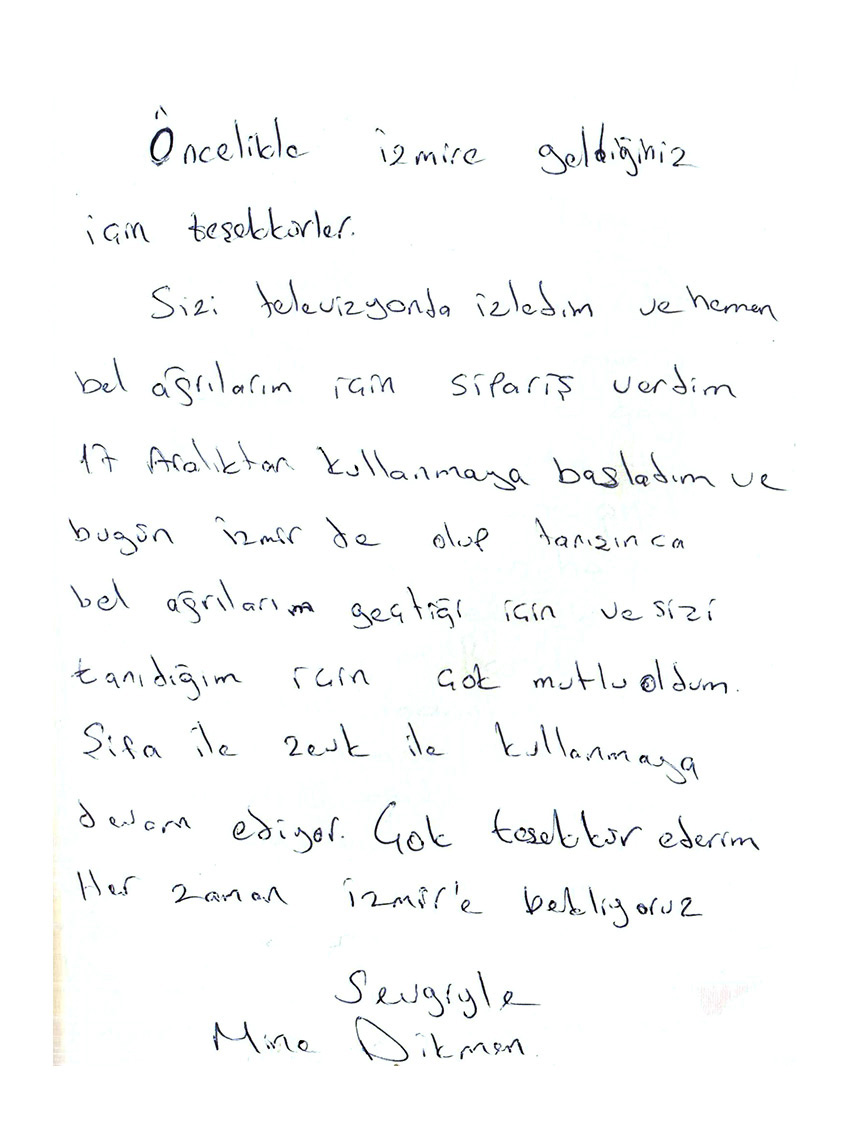 Öncelikle izmire geldiğiniz
için teşekkürler.
Sizi televizyonda izledim ve hemen
bel ağrılarım için sipariş verdim
17 Aralıktan kullanmaya başladım ve
bugün izmir de olup tanışınca
bel ağrılarım geçtiği için ve sizi
tanıdığım için çok mutlu oldum.
Şifa ile zevk ile kullanmaya
devam ediyor. Çok teşekkür ederim
Her zaman izmir'e bekliyoruz
Sevgiyle
Mine Dikmen.